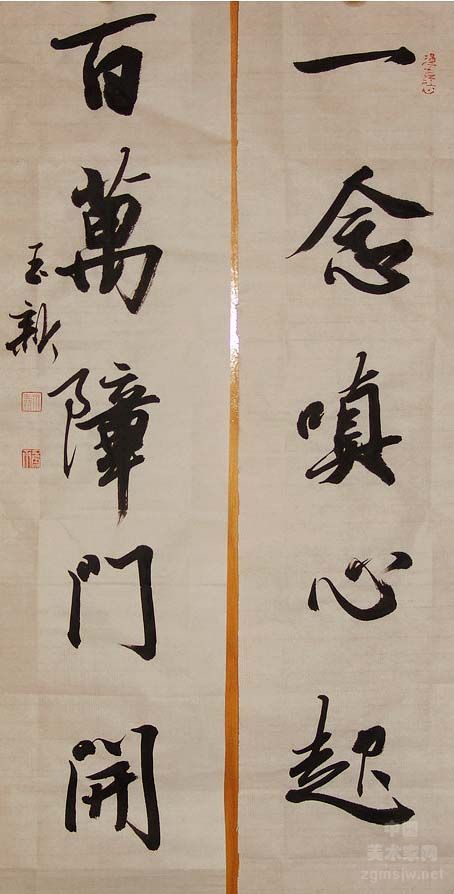 一念嗔心起
百萬障门開
玉新
中国
美术家网
zgmsjw.net